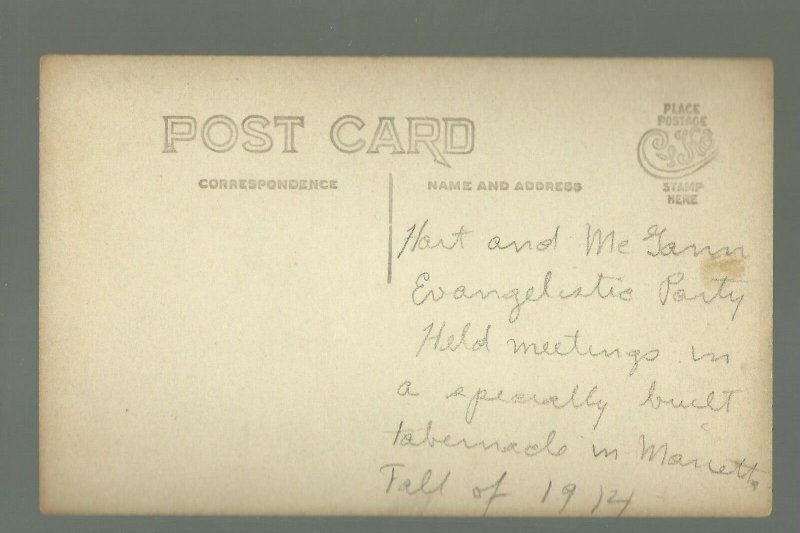 POST CARD
CORRESPONDENCE
NAME AND ADDRESS
PLACE
POSTAGE
STAMP
HERE
Hart and McGann
Evangelistic Party
Held meetings in
a specially built
tabernacle in Marietta
Fall of 1914